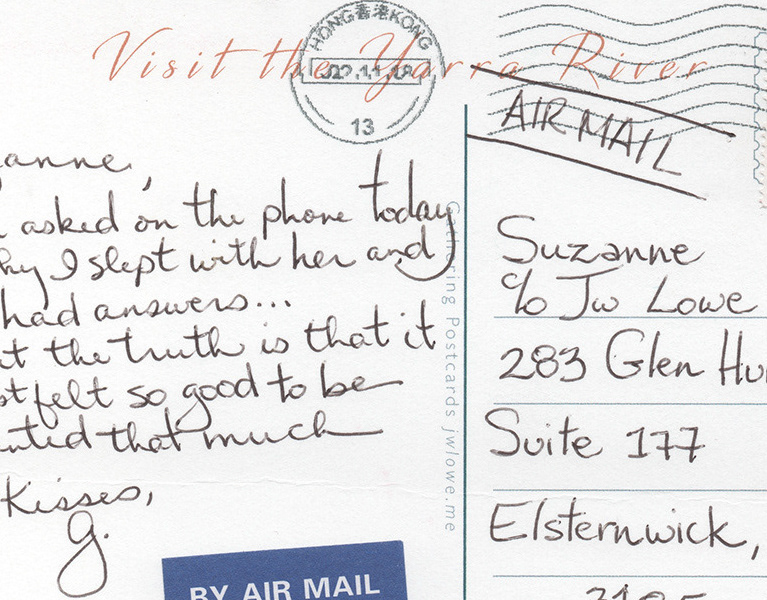 Visit the Yarra River
HONG 香港 KONG
13
AIR MAIL
anne,
asked on the phone today
hy I slept with her and
had answers...
t the truth is that it
st felt so good to be
nted that much
Kisses,
g.
BY AIR MAIL
Gathering Postcards jwlowe.me
Suzanne
c/o Jw Lowe
283 Glen Hu
Suite 177
Elsternwick,